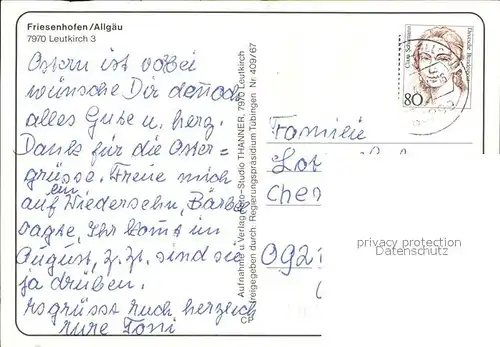 Friesenhofen/Allgäu
7970 Leutkirch 3
Ostern ist vorbei
wünsche Dir dennoch
alles Gute u. herz.
Dank für die Oster=
grüsse. Freue mich
auf ein Wiedersehn, Bärbel
sagte, Ihr kommt im
August, z.Zt. sind sie
ja drüben.
Es grüsst Euch herzlich
Eure Toni
Aufnahme u. Verlag Foto-Studio THANNER, 7970 Leutkirch
Freigegeben durch: Regierungspräsidium Tübingen Nr. 409/67
CP
Clara Schumann
Deutsche Bundespost
80
Familie
Lot
Che
092
privacy protection
Datenschutz